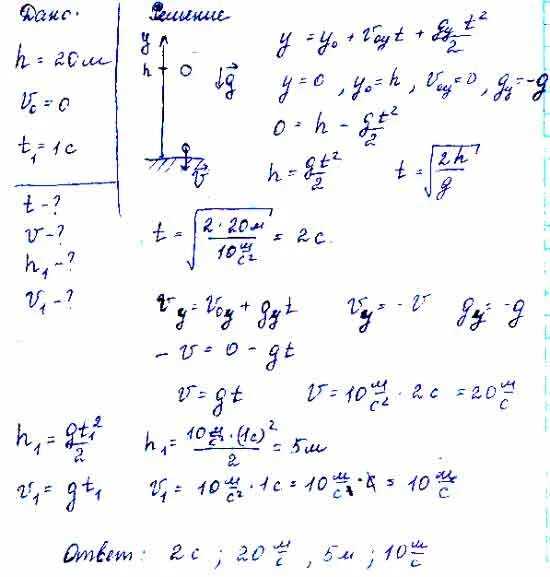 Дано:
h = 20 м
v₀ = 0
t₁ = 1 с
t - ?
v - ?
h₁ - ?
v₁ - ?
Решение
y
h
g⃗
v⃗
y = y₀ + v₀y t + gy t²/2
y = 0 , y₀ = h , v₀y = 0 , gy = -g
0 = h - gt²/2
h = gt²/2    t = √(2h/g)
t = √(2 · 20 м / 10 м/с²) = 2 с.
vy = v₀y + gy t    vy = - v    gy = -g
- v = 0 - gt
v = gt    v = 10 м/с² · 2 с = 20 м/с
h₁ = gt₁²/2    h₁ = 10 м/с² · (1с)²/2 = 5 м
v₁ = gt₁    v₁ = 10 м/с² · 1 с = 10 м/с = 10 м/с
Ответ: 2 с ; 20 м/с , 5 м ; 10 м/с